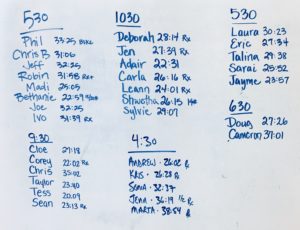 530
Phil 33:25 Bike
Chris B 31:06
Jeff 32:25
Robin 31:58
Madi 25:05
Bethanie 22:59
Joe 32:25
Ivo 31:39 Rx
1030
Deborah 28:14 Rx
Jen 27:39 Rx
Adair 22:31
Carla 26:16 Rx
Leann 24:01 Rx
Shwetha 26:15
Sylvie 29:07
530
Laura 30:23
Eric 27:34
Talina 29:38
Sarai 25:52
Jayme 23:57
630
Doug 27:26
Cameron 37:01
9:30
Cloe 27:18
Corey 22:02 Rx
Chris 35:02
Taylor 23:40
Tess 20:09
Sean 23:13 Rx
4:30
ANDREW · 26:02 R
KRIS · 26:23 R
SONIA · 32:37
JENN · 36:19 ½ R
MARTA · 38:54 R